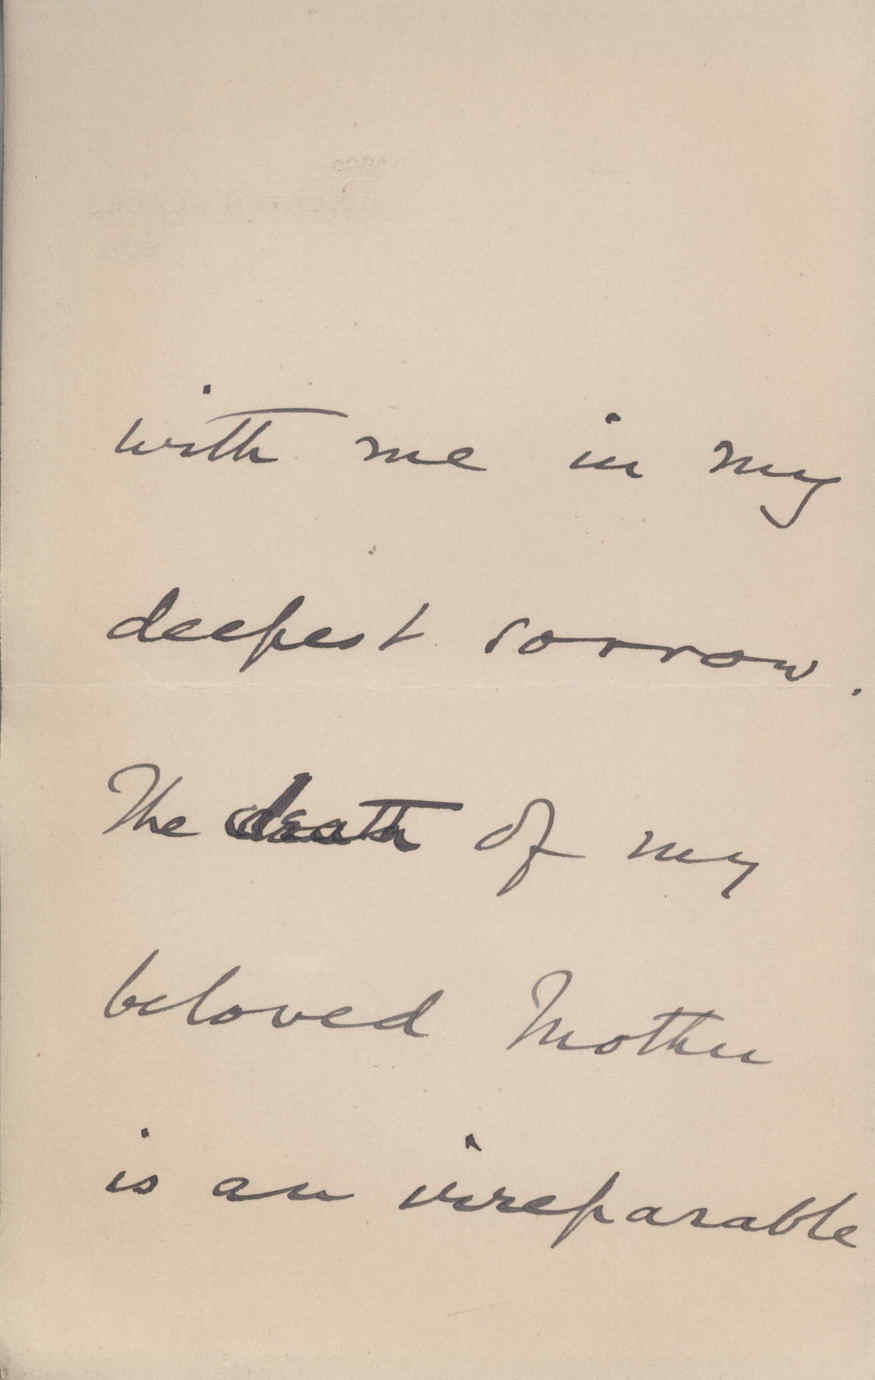 with me in my
deepest sorrow.
The death of my
beloved Mother
is an irreparable